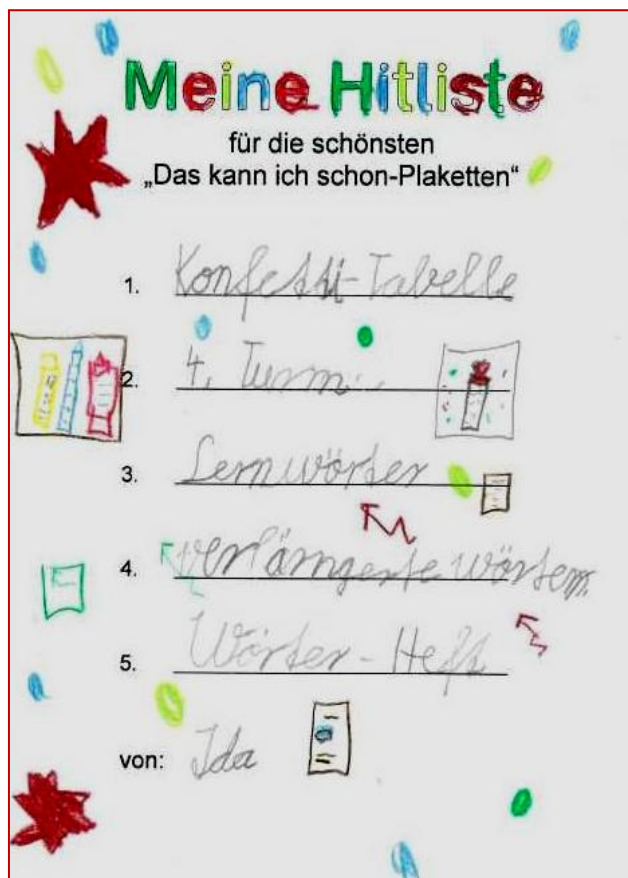 Meine Hitliste
für die schönsten
„Das kann ich schon-Plaketten“
1. Konfetti-Tabelle
2. 4. Turm
3. Lernwörter
4. verlängerte Wörter
5. Wörter-Heft
von: Ida